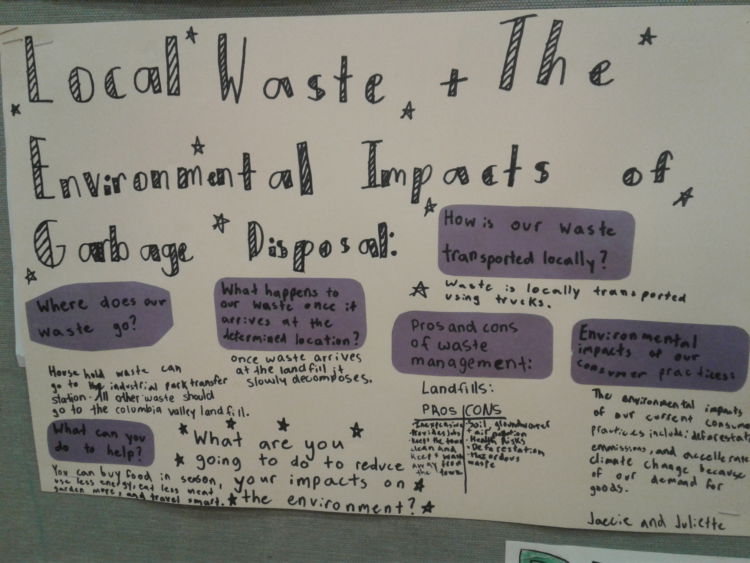 Local Waste + The
Environmental Impacts of
Garbage Disposal:
How is our waste
transported locally?
Waste is locally transported
using trucks.
Where does our
waste go?
House hold waste can
go to the industrial park transfer
station. All other waste should
go to the columbia valley landfill.
What happens to
our waste once it
arrives at the
determined location?
once waste arrives
at the landfill it
slowly decomposes.
Pros and cons
of waste
management:
Landfills:
PROS CONS
Inexpensive
Provides jobs
keeps the town
clean and
keeps waste
away from
the town
Soil, groundwater
+ air pollution
Health Risks
Deforestation
Hazardous
waste
Environmental
impacts of our
consumer practices:
The environmental impacts
of our current consume
practices include: deforestat
emmissions, and accelerate
climate change because
of our demand for
goods.
What can you
do to help?
You can buy food in season,
use less energy, eat less meat,
garden more, and travel smart.
What are you
going to do to reduce
your impacts on
the environment?
Jaecie and Juliette